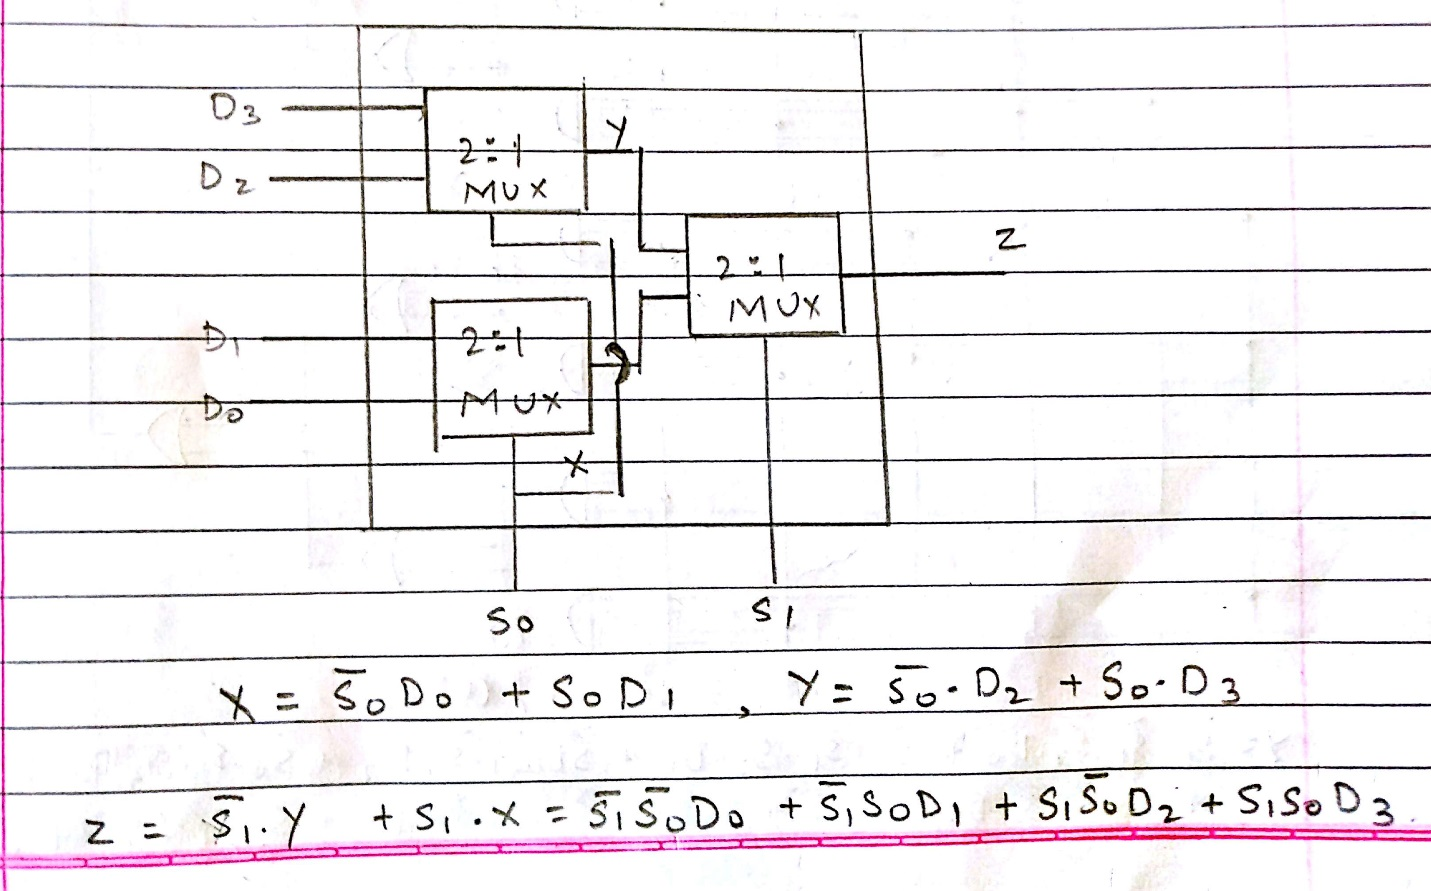 D3
Y
2:1
D2
MUX
Z
2:1
MUX
D1
2:1
D0
MUX
X
S0
S1
X = S̅0 D0 + S0 D1 , Y = S̅0 . D2 + S0 . D3
Z = S̅1 . Y + S1 . X = S̅1 S̅0 D0 + S̅1 S0 D1 + S1 S̅0 D2 + S1 S0 D3 .